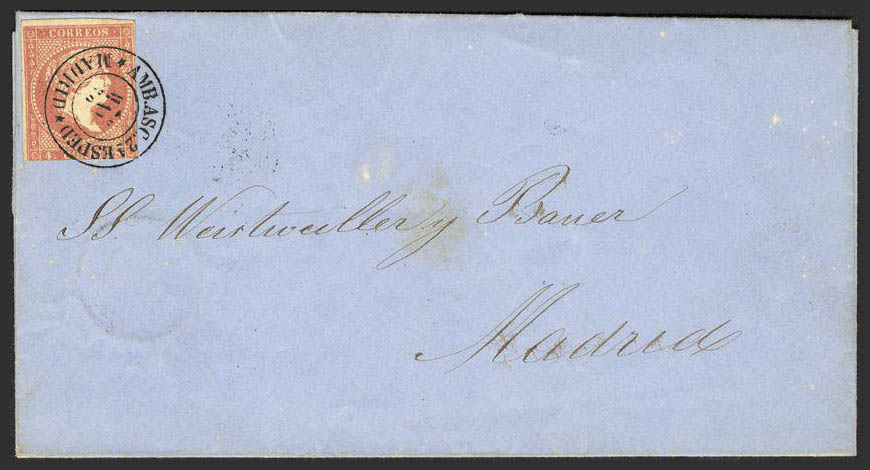 CORREOS
AMB. ASC. 2A ESPED * MADRID *
SS. Weistweiller y Bauer
Madrid